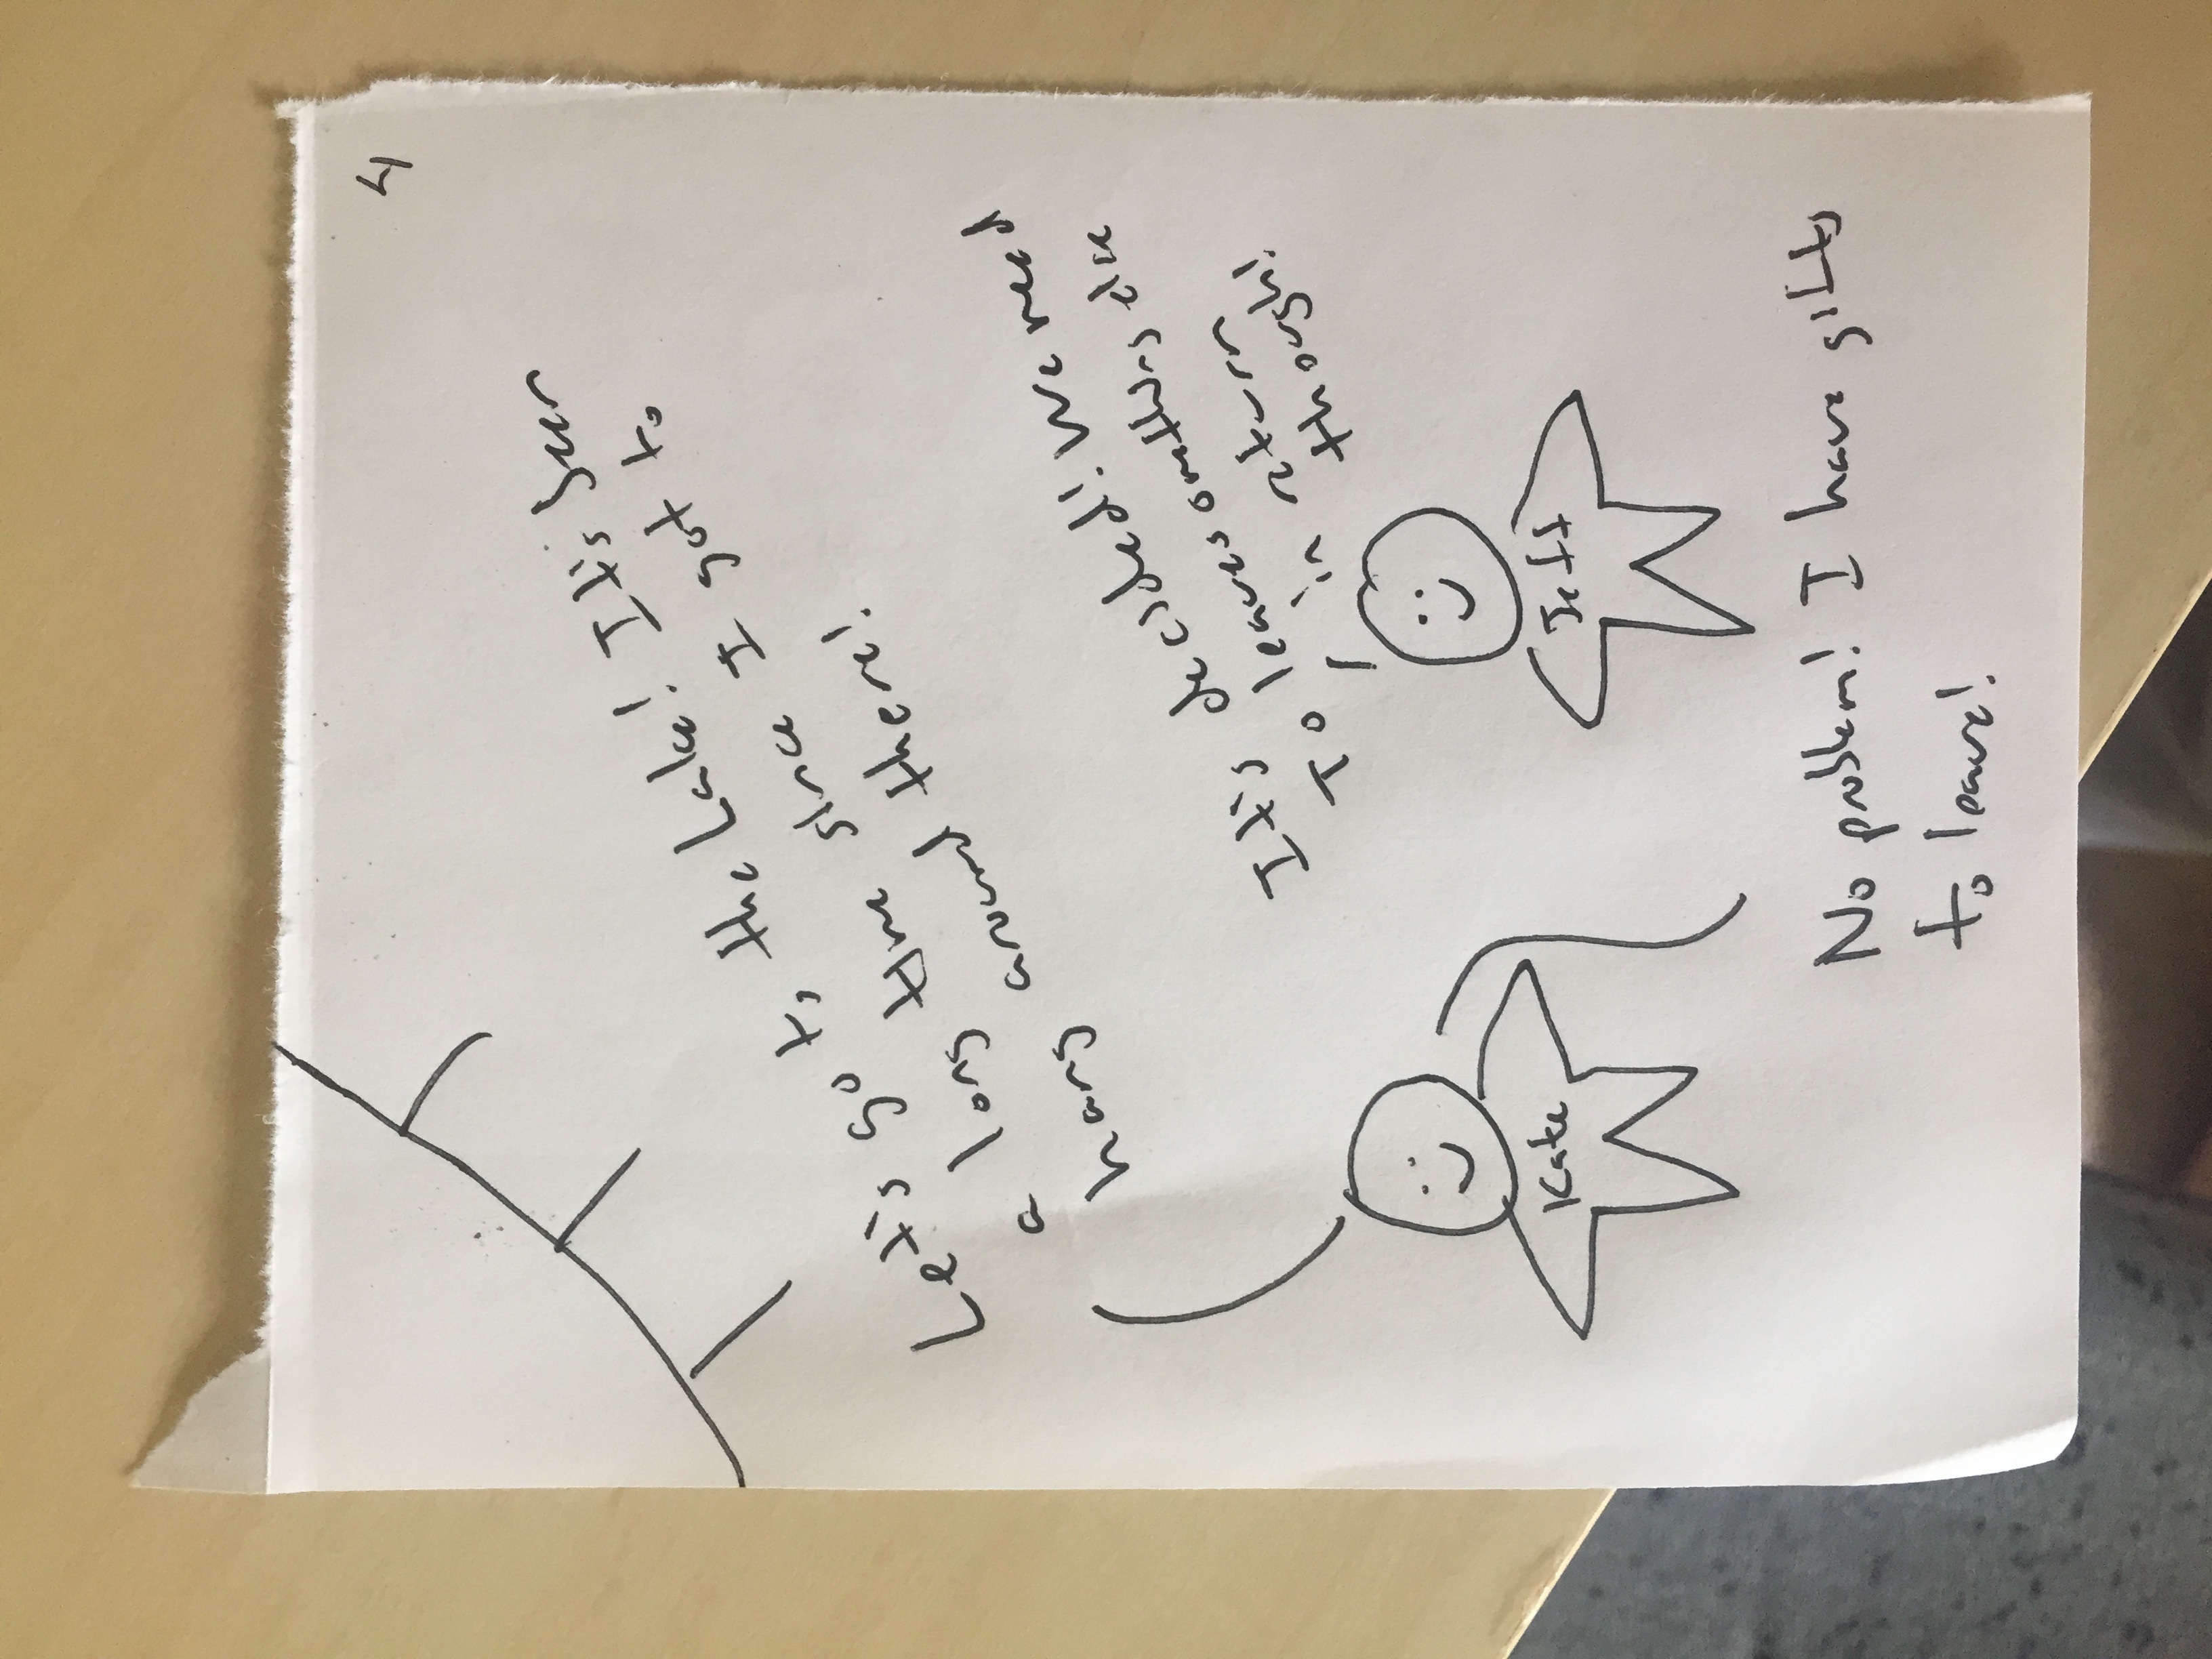 4
Let's go to the Lake! It's been
a long time since I got to
hang around there!
It's decided! We need
To leave something else
in return
though!
Kate
Jeff
No problem! I have gifts
to leave!